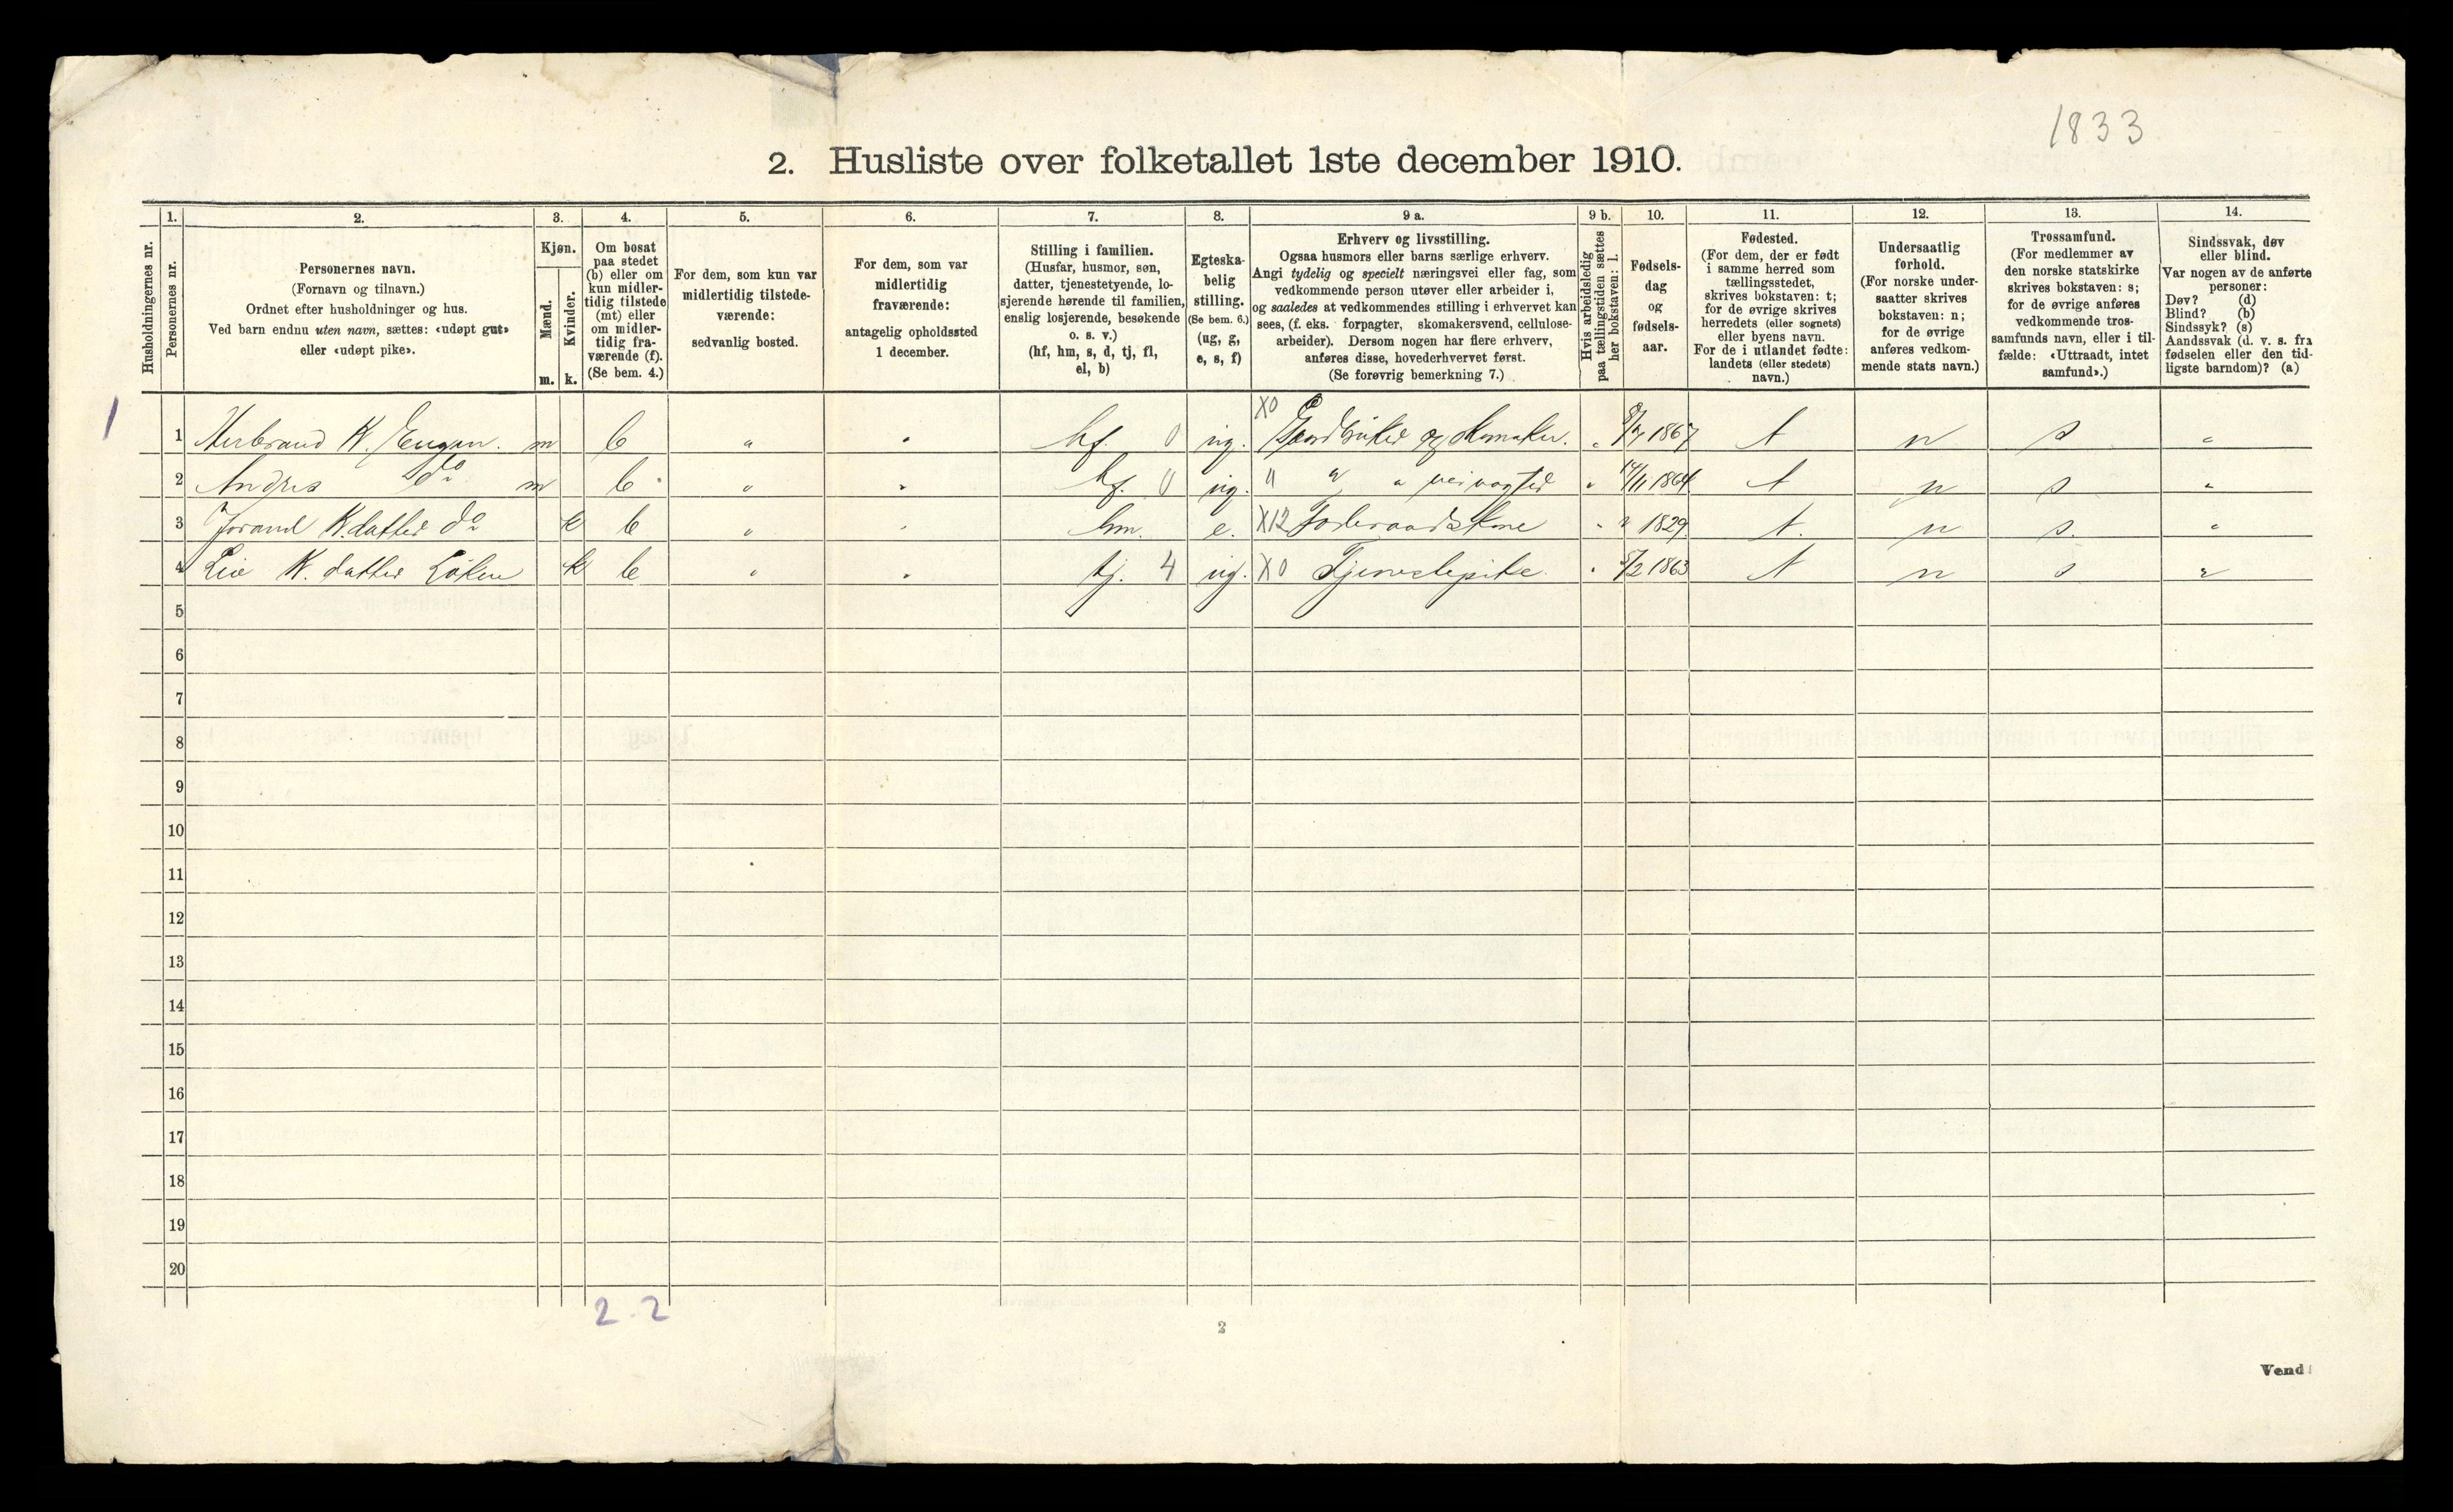 1833
2. Husliste over folketallet 1ste december 1910.
Husholdningernes nr.
1.
Personernes nr.
2.
Personernes navn.
(Fornavn og tilnavn.)
Ordnet efter husholdninger og hus.
Ved barn endnu uten navn, sættes: «udøpt gut»
eller «udøpt pike».
3.
Kjøn.
Mænd.
Kvinder.
m. k.
4.
Om bosat
paa stedet
(b) eller om
kun midler-
tidig tilstede
(mt) eller
om midler-
tidig fra-
værende (f).
(Se bem. 4.)
5.
For dem, som kun var
midlertidig tilstede-
værende:
sedvanlig bosted.
6.
For dem, som var
midlertidig
fraværende:
antagelig opholdssted
1 december.
7.
Stilling i familien.
(Husfar, husmor, søn,
datter, tjenestetyende, lo-
sjerende hørende til familien,
enslig losjerende, besøkende
o. s. v.)
(hf, hm, s, d, tj, fl,
el, b)
8.
Egteska-
belig
stilling.
(Se bem. 6.)
(ug, g,
e, s, f)
9 a.
Erhverv og livsstilling.
Ogsaa husmors eller barns særlige erhverv.
Angi tydelig og specielt næringsvei eller fag, som
vedkommende person utøver eller arbeider i,
og saaledes at vedkommendes stilling i erhvervet kan
sees, (f. eks. forpagter, skomakersvend, cellulose-
arbeider). Dersom nogen har flere erhverv,
anføres disse, hovederhvervet først.
(Se forøvrig bemerkning 7.)
9 b.
Hvis arbeidsledig
paa tællingstiden sættes
her bokstaven: l.
10.
Fødsels-
dag
og
fødsels-
aar.
11.
Fødested.
(For dem, der er født
i samme herred som
tællingsstedet,
skrives bokstaven: t;
for de øvrige skrives
herredets (eller sognets)
eller byens navn.
For de i utlandet fødte:
landets (eller stedets)
navn.)
12.
Undersaatlig
forhold.
(For norske under-
saatter skrives
bokstaven: n;
for de øvrige
anføres vedkom-
mende stats navn.)
13.
Trossamfund.
(For medlemmer av
den norske statskirke
skrives bokstaven: s;
for de øvrige anføres
vedkommende tros-
samfunds navn, eller i til-
fælde: «Uttraadt, intet
samfund».)
14.
Sindssvak, døv
eller blind.
Var nogen av de anførte
personer:
Døv? (d)
Blind? (b)
Sindssyk? (s)
Aandssvak (d. v. s. fra
fødselen eller den tid-
ligste barndom)? (a)
1 1 Herbrand K. Eugen. m b " " hf. 0 ug. X0 Gaardbruker og Skomaker. " 1867 t n s "
2 Andres do m b " " hf. 0 ug. " " " veivogter " 14/11 1864 t n s "
3 Jorand K.datter do k b " " hm. e. X12 Foderaadskone " " 1829 t. n s. "
4 K. datter Löken k b " " tj. 4 ug. X0 Tjenestepike. " 5/2 1863 t n s "
5
6
7
8
9
10
11
12
13
14
15
16
17
18
19
20
2 - 2
2
Vend!